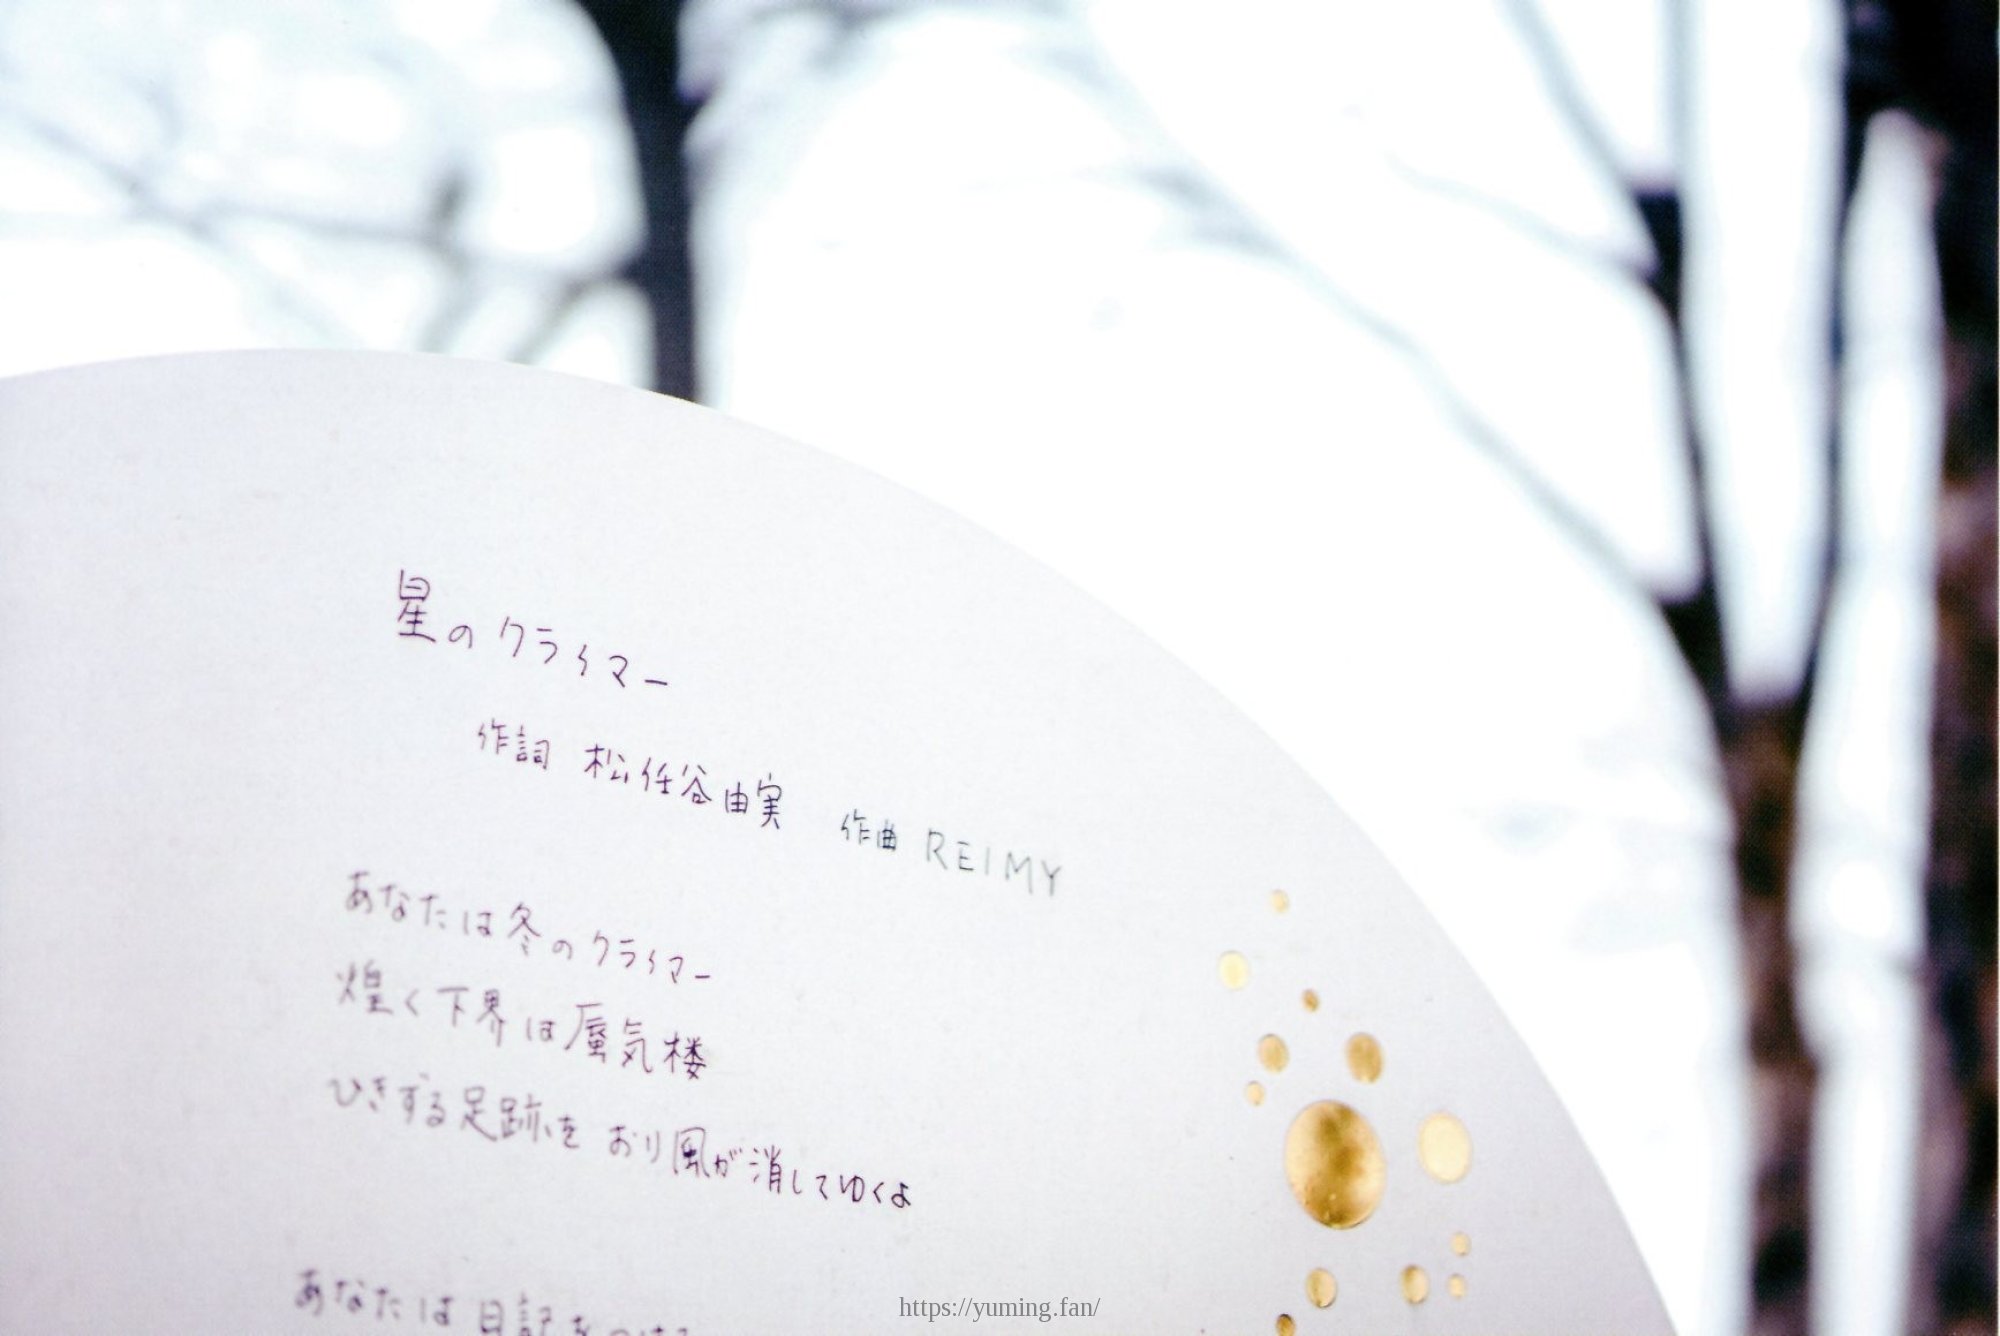 星のクライマー
作詞 松任谷由実 作曲 REIMY
あなたは冬のクライマー
煌く下界は蜃気楼
ひきずる足跡を おり風が消してゆくよ
あなたは日記を
https://yuming.fan/